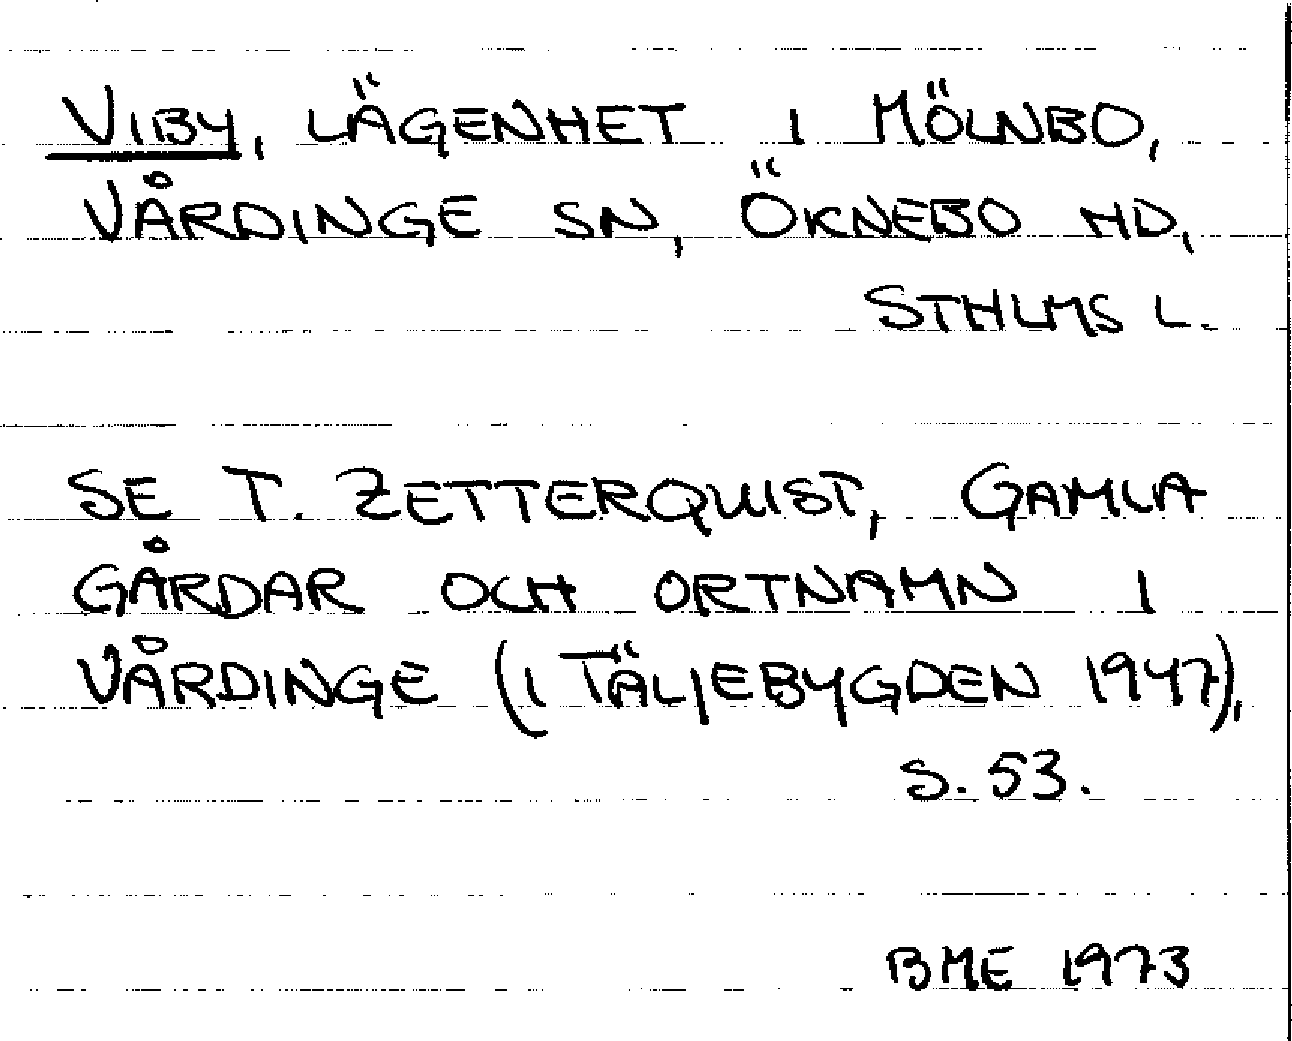 VIBY, LÄGENHET I MÖLNBO,
VÅRDINGE SN, ÖKNEBO HD,
STHLMS L.
SE T. ZETTERQUIST, GAMLA
GÅRDAR OCH ORTNAMN I
VÅRDINGE (I TÄLJEBYGDEN 1947),
S. 53.
BME 1973